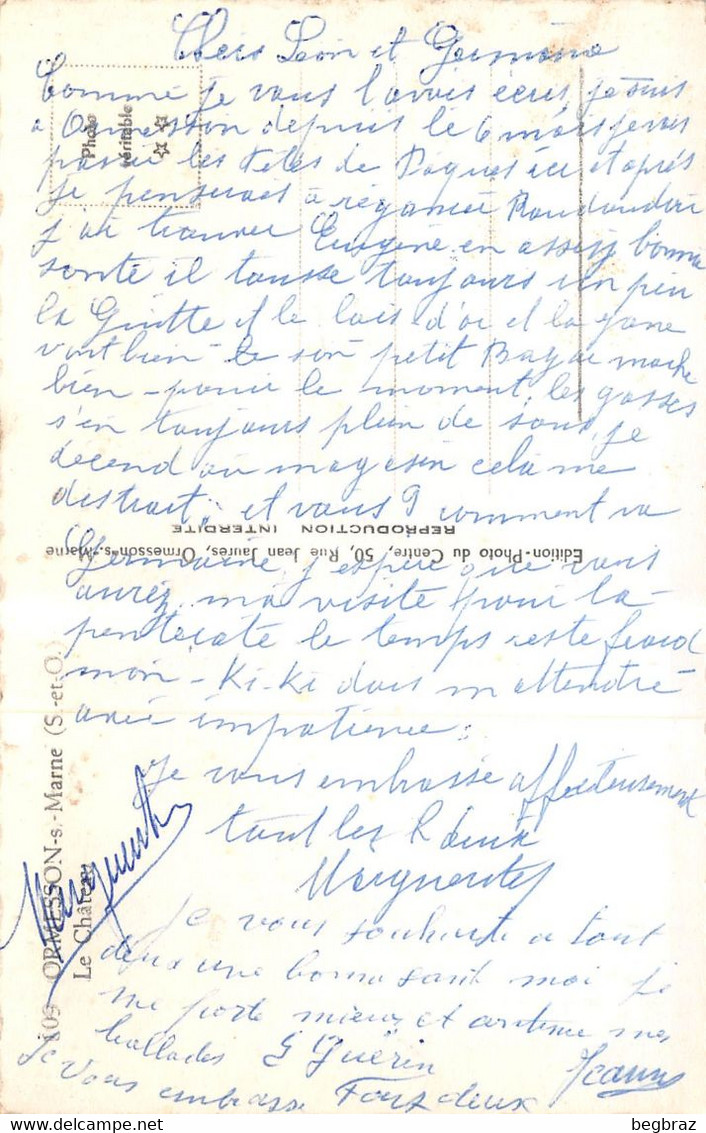 Chers Léon et Germaine
Comme je vous l'avais écris, je suis
a Ormesson depuis le 6 mais je vais
passer les fetes de Paques ici et après
je penserais à
j'ai trouver Eugène en assez bonne
sante il tousse toujours un peu
la et le lais d'or et la
vont bien - le son petit mache
bien - pour le moment, les gosses
s'en toujours plein de sous, je
decend au magasin cela me
distrait, et vous ? comment va
Germaine j'espère que vous
aurez ma visite pour la
pentecote le temps reste froid
mon - Ki-Ki dois m'attendre
avec impatience.
Je vous embrasse affectueusement
tout les 2 deux
Marguerite
Je vous souhaite a tout
deux une bonne santé moi je
me porte mieux et continue mes
ballades G Guérin
Je vous embrasse Tous deux
Jeanne
Photo
véritable
Edition-Photo du Centre, 50, Rue Jean Jaurès, Ormesson-s-Marne
REPRODUCTION INTERDITE
109 ORMESSON-s.-Marne (S.-et-O.)
Le Château
delcampe.net
begbraz